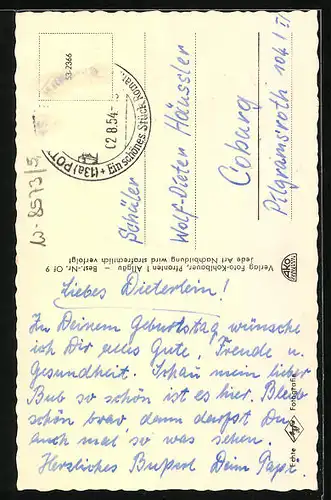 Liebes Dieterlein!
Zu Deinem Geburtstag wünsche
ich Dir alles Gute, Freude u.
Gesundheit. Schau mein lieber
Bub so schön ist es hier. Bleib
schön brav, dann darfst Du
auch mal so was sehen.
Herzliches Busserl Dein Papi.
Schüler
Wolf-Dieter Häussler
Coburg
Pilgramsroth 104 1/II
Verlag Foto-Kohlbauer, Pfronten i. Allgäu - Best.-Nr. Of 9
Jede Art Nachbildung wird strafrechtlich verfolgt
53-2366
(13a) POT
+ Ein schönes Stück Roman
02.8.54-
W-8573/5
AKO
Echte
Agfa
Fotografie